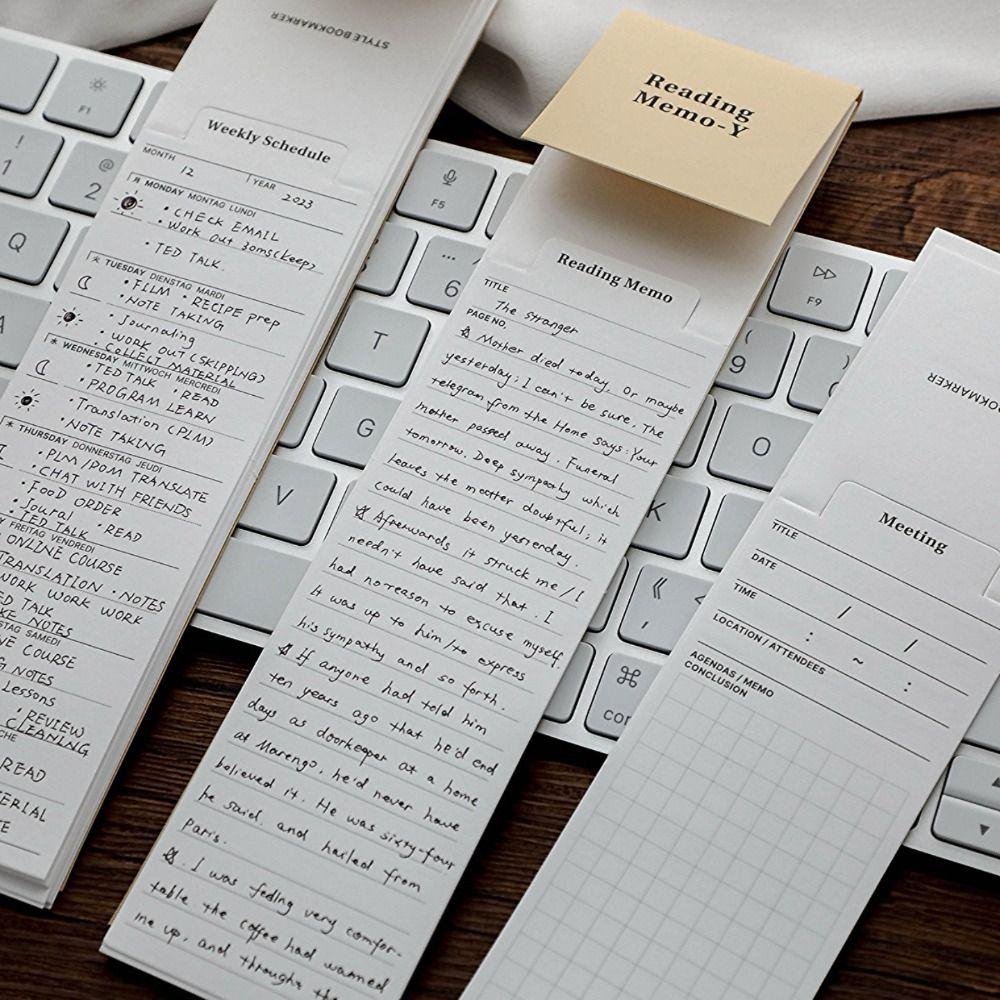 STYLE BOOKMARKER
Weekly Schedule
MONTH 12 YEAR 2023
MONDAY MONTAG LUNDI
• CHECK EMAIL
• Work out 30ms(keep)
• TED TALK.
* TUESDAY DIENSTAG MARDI
• FILM • RECIPE prep
• NOTE TAKING
• Journaling
• WORK OUT (SKIPPING)
• COLLECT MATERIAL
* WEDNESDAY MITTWOCH MERCREDI
• TED TALK • READ
• PROGRAM LEARN
• Translation (PLM)
• NOTE TAKING
* THURSDAY DONNERSTAG JEUDI
• PLM/POM TRANSLATE
• CHAT WITH FRIENDS
• FOOD ORDER
• Joural
• TED TALK • READ
FREITAG VENDREDI
ONLINE COURSE
TRANSLATION • NOTES
WORK WORK WORK
TALK
NOTES
SAMEDI
COURSE
NOTES
Lessons
• REVIEW
CLEANING
READ
Reading
Memo-Y
Reading Memo
TITLE The Stranger
PAGE NO.
☆ Mother died today. Or maybe
yesterday; I can't be sure. The
telegram from the Home says: Your
mother passed away. Funeral
tomorrow. Deep sympathy which
leaves the matter doubtful; it
could have been yesterday.
☆ Afterwards it struck me / I
needn't have said that. I
had no reason to excuse myself.
it was up to him / to express
his sympathy and so forth.
☆ If anyone had told him
ten years ago that he'd end
days as doorkeeper at a home
at Marengo, he'd never have
believed it. He was sixty-four
he said. and hailed from
Paris.
☆. I was feeling very comfor-
table the coffee had warmed
me up, and through the
BOOKMARKER
Meeting
TITLE
DATE / /
TIME : ~ :
LOCATION / ATTENDEES
AGENDAS / MEMO
CONCLUSION
F1
F5
F9
!
1
@
2
6
(
9
Q
T
O
A
G
K
V
⌘